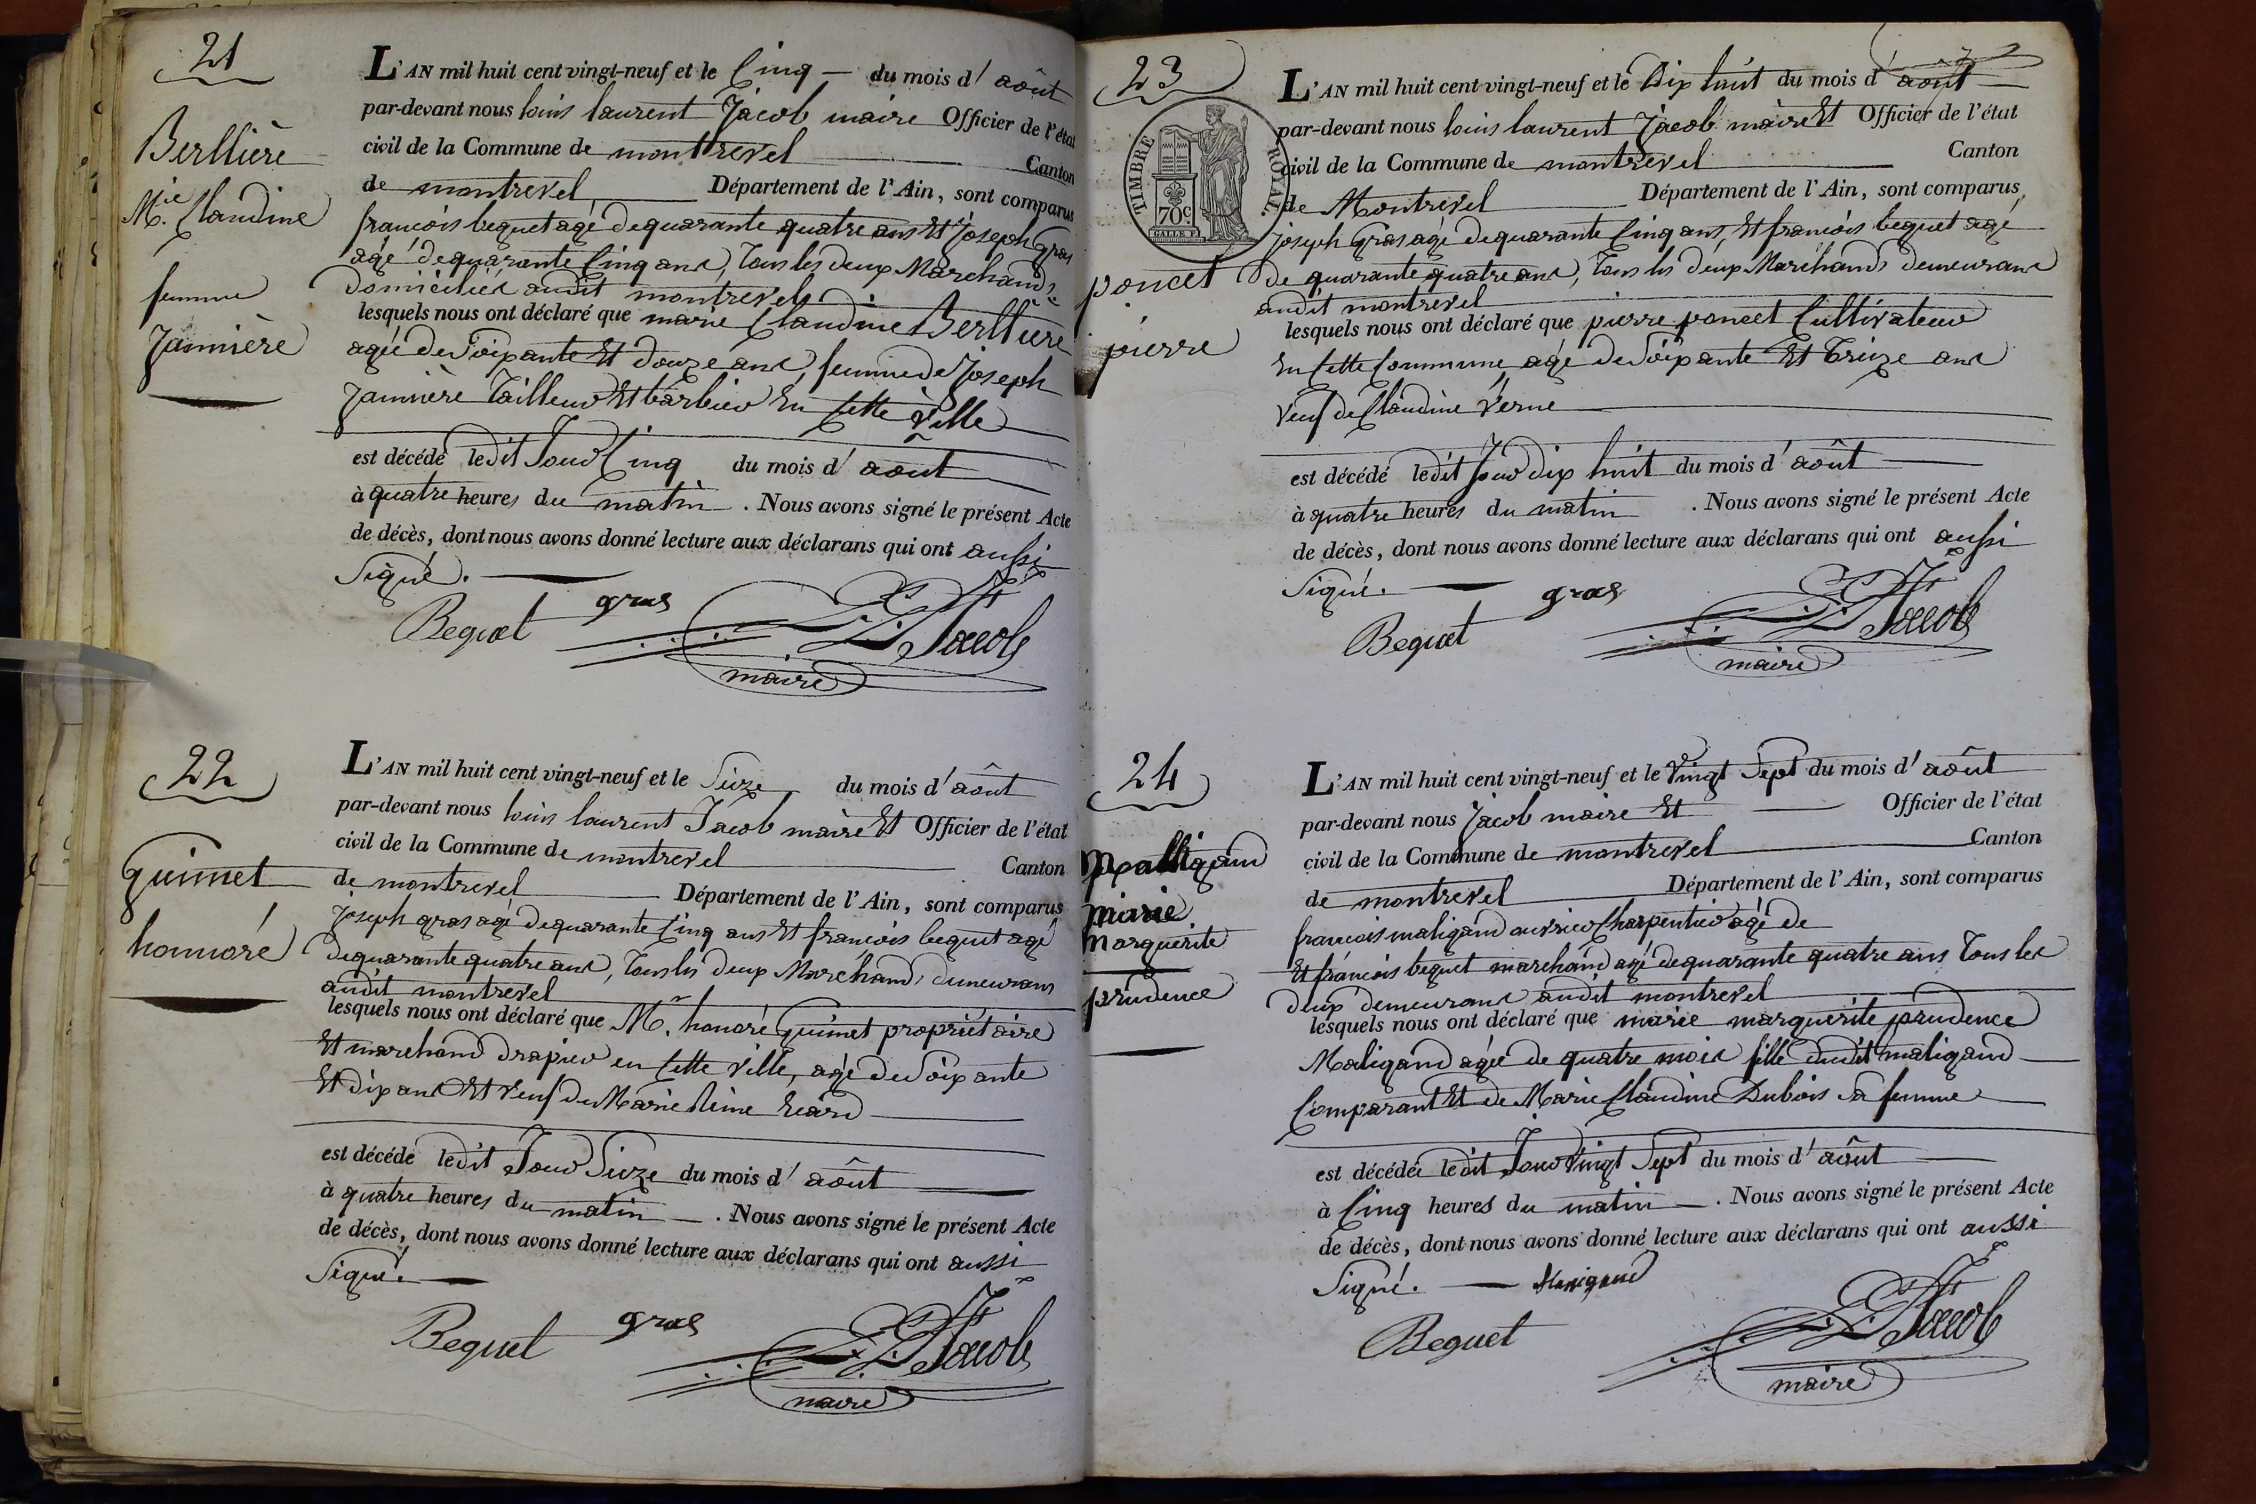 21
Berllière
M.ie Claudine
femme
Jannière
L'AN mil huit cent vingt-neuf et le Cinq — du mois d' août
par-devant nous louis laurent Jacob maire Officier de l'état
civil de la Commune de montrevel Canton
de montrevel Département de l'Ain, sont comparus
francois bequet agé de quarante quatre ans Et Joseph Gras
agé de quarante Cinq ans, Tous les deux Marchands
domiciliés audit montrevel
lesquels nous ont déclaré que marie Claudine Berllière
agée de Soixante Et douze ans, femme de Joseph
Jannière Tailleur Et barbier En Cette Ville
est décédé ledit Jour Cinq du mois d' août
à quatre heures du matin. Nous avons signé le présent Acte
de décès, dont nous avons donné lecture aux déclarans qui ont aussi
Signé.
Bequet gras Jacob
maire
22
Guimet
honnoré
L'AN mil huit cent vingt-neuf et le Sieze du mois d' août
par-devant nous louis laurent Jacob maire Et Officier de l'état
civil de la Commune de montrevel Canton
de montrevel Département de l'Ain, sont comparus
Joseph gras agé de quarante Cinq ans Et francois bequet agé
de quarante quatre ans, Tous les deux Marchands demeurans
audit montrevel
lesquels nous ont déclaré que Mr. honoré Guimet propriétaire
Et marchand drapier en Cette Ville, agé de Soixante
Et dix ans Et Veuf de Marie
est décédé ledit Jour Sieze du mois d' août
à quatre heures du matin —. Nous avons signé le présent Acte
de décès, dont nous avons donné lecture aux déclarans qui ont aussi
Signé. —
Bequet gras Jacob
maire
23
TIMBRE ROYAL.
70c
poncet
pierre
L'AN mil huit cent vingt-neuf et le Dix huit du mois d' août
par-devant nous louis laurent Jacob maire Et Officier de l'état
civil de la Commune de montrevel Canton
de Montrevel Département de l'Ain, sont comparus,
Joseph Gras agé de quarante Cinq ans, Et francois bequet agé
de quarante quatre ans, Tous les deux Marchands demeurans
audit montrevel
lesquels nous ont déclaré que pierre poncet Cultivateur
En Cette Commune, agé de Soixante Et Treize ans
Veuf de Claudine Verne
est décédé ledit Jour dix huit du mois d' août
à quatre heures du matin . Nous avons signé le présent Acte
de décès, dont nous avons donné lecture aux déclarans qui ont aussi
Signé. —
Bequet gras Jacob
maire
24
Malligand
Marie
Marguerite
prudence
L'AN mil huit cent vingt-neuf et le Vingt Sept du mois d' août
par-devant nous Jacob maire Et Officier de l'état
civil de la Commune de montrevel Canton
de montrevel Département de l'Ain, sont comparus
francois maligand ouvrier Charpentier agé de
Et francois bequet marchand agé de quarante quatre ans Tous les
deux demeurans audit montrevel
lesquels nous ont déclaré que marie marguerite prudence
Maligand agée de quatre mois fille dudit maligand
Comparant Et de Marie Claudine Dubois Sa femme
est décédée ledit Jour Vingt Sept du mois d' août
à Cinq heures du matin —. Nous avons signé le présent Acte
de décès, dont nous avons donné lecture aux déclarans qui ont aussi
Signé. — Maligand
Bequet Jacob
maire